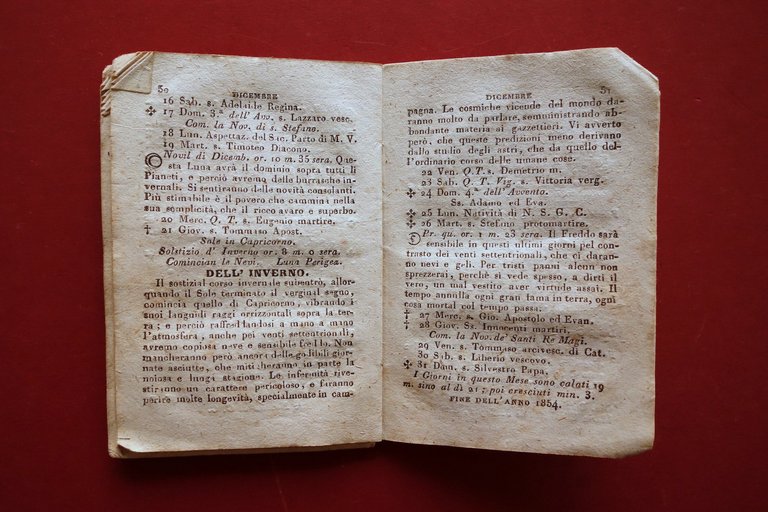 50
DICEMBRE
16 Sab. s. Adelaide Regina.
✠ 17 Dom. 3.ª dell' Avv. s. Lazzaro vesc.
Com. la Nov. di s. Stefano.
18 Lun. Aspettaz. del Sac. Parto di M. V.
19 Mart. s. Timoteo Diacono.
Novil di Dicemb. or. 10 m. 35 sera. Que-
sta Luna avrà il dominio sopra tutti li
Pianeti, e perciò avremo delle burrasche in-
vernali. Si sentiranno delle novità consolanti.
Più stimabile è il povero che cammina nella
sua semplicità, che il ricco avaro e superbo.
20 Merc. Q. T. s. Eugenio martire.
† 21 Giov. s. Tommaso Apost.
Sole in Capricorno.
Solstizio d' Inverno or. 8 m. 0 sera.
Comincian le Nevi. Luna Perigea.
DELL' INVERNO.
Il sostizial corso invernale subentrò, allor-
quando il Sole terminato il verginal segno,
comincia quello di Capricorno, vibrando i
suoi languidi raggi orrizzontali sopra la ter-
ra; e perciò raffreddandosi a mano a mano
l'atmosfera, anche pei venti settentrionali,
avremo copiosa neve e sensibile freddo. Non
mancheranno però ancora delle godibili gior-
nate asciutte, che mitigheranno in parte la
noiosa e lunga stagione. Le infermità rive-
stiranno un carattere pericoloso, e faranno
perire molte longevità, specialmente in cam-
51
DICEMBRE
pagna. Le cosmiche vicende del mondo da-
ranno molto da parlare, somministrando ab-
bondante materia ai gazzettieri. Vi avverto
però, che queste predizioni meno derivano
dallo studio degli astri, che da quello del-
l'ordinario corso delle umane cose.
22 Ven. Q. T. s. Demetrio m.
23 Sab. Q. T. Vig. s. Vittoria verg.
✠ 24 Dom. 4.ª dell' Avvento.
Ss. Adamo ed Eva.
✠ 25 Lun. Natività di N. S. G. C.
✠ 26 Mart. s. Stefano protomartire.
Pr. qu. or. 1 m. 23 sera. Il Freddo sarà
sensibile in questi ultimi giorni pel con-
trasto dei venti settentrionali, che ci daran-
no nevi e geli. Per tristi panni alcun non
sprezzerai, perchè si vede spesso, a dirti il
vero, un mal vestito aver virtude assai. Il
tempo annulla ogni gran fama in terra, ogni
cosa mortal col tempo passa.
† 27 Merc. s. Gio. Apostolo ed Evan.
† 28 Giov. Ss. Innocenti martiri.
Com. la Nov. de' Santi Re Magi.
29 Ven. s. Tommaso arcivesc. di Cat.
30 Sab. s. Liberio vescovo.
✠ 31 Dom. s. Silvestro Papa.
I Giorni in questo Mese sono calati 19
m. sino al dì 21; poi cresciuti min. 3.
FINE DELL'ANNO 1854.